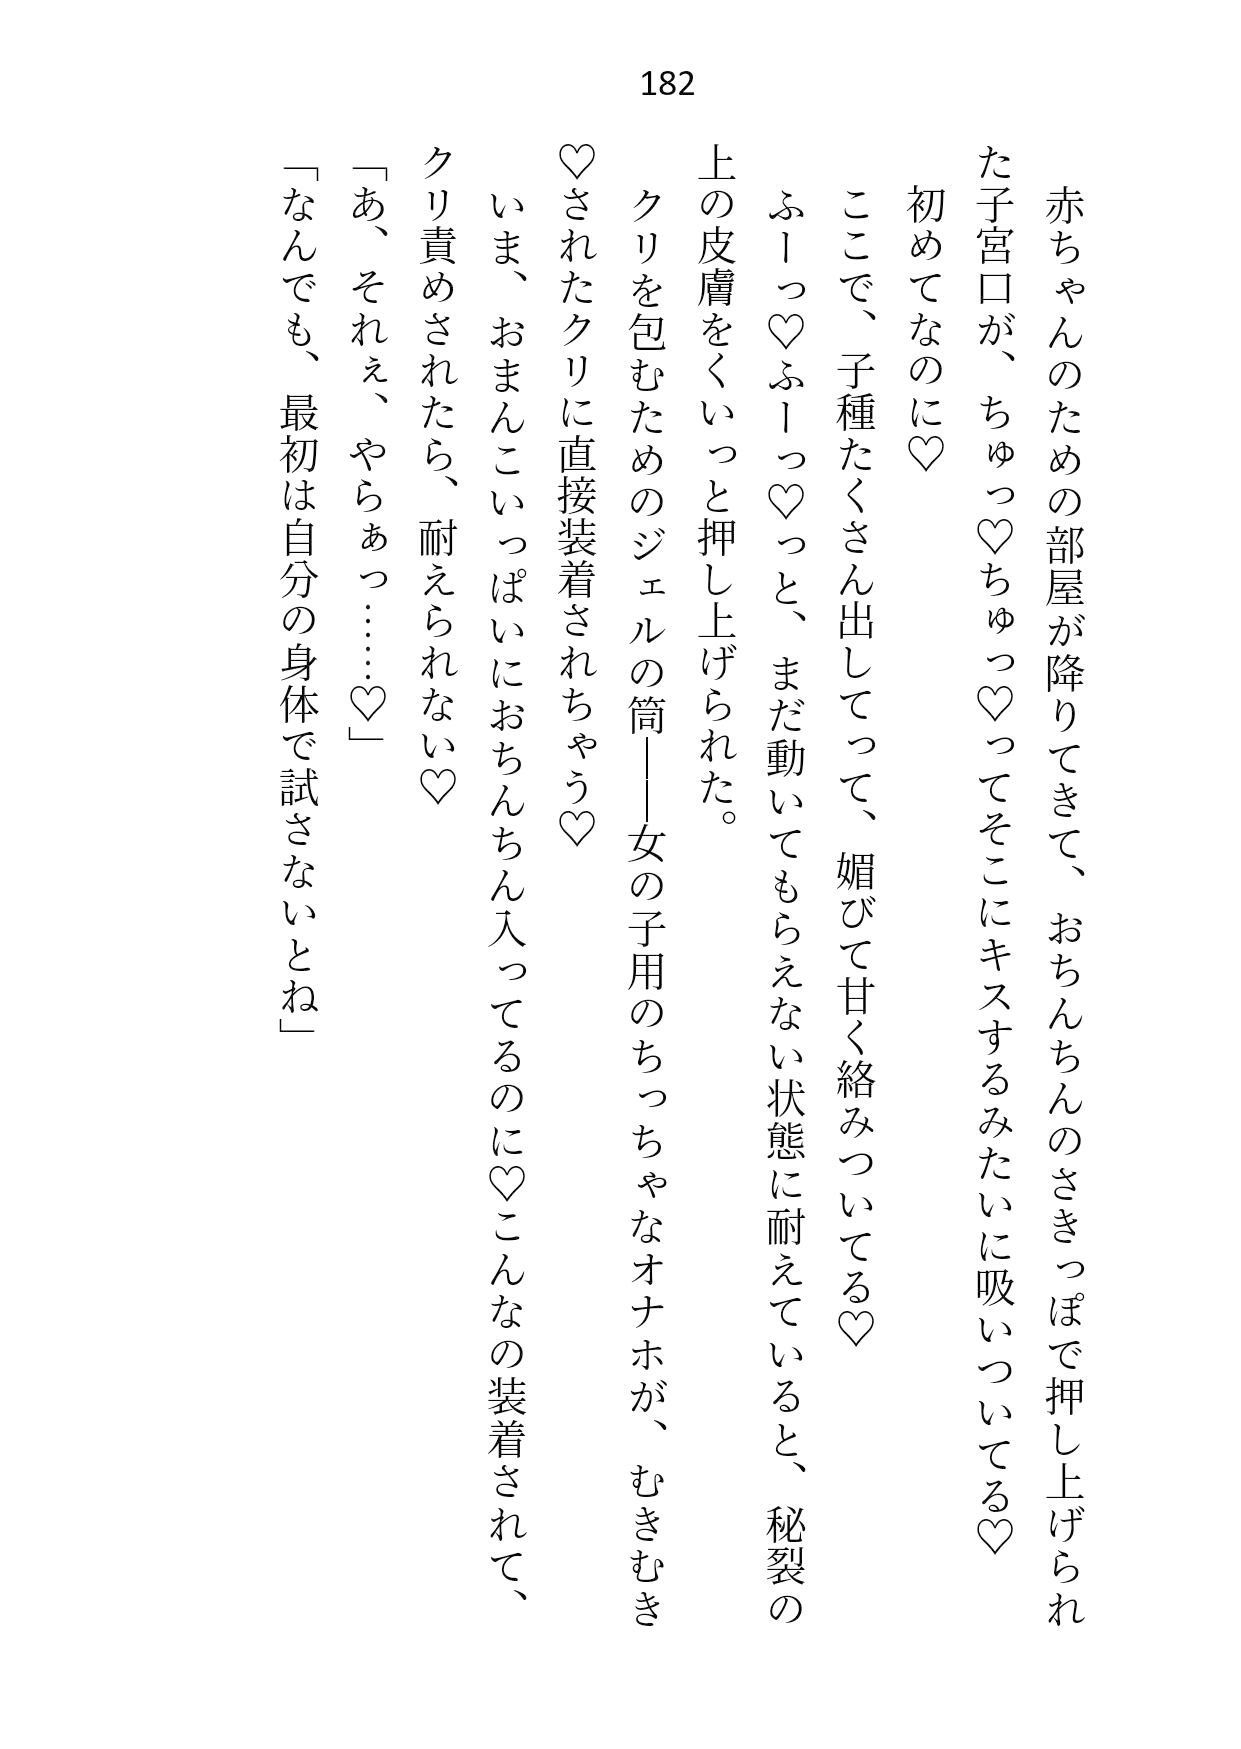 182
赤ちゃんのための部屋が降りてきて、おちんちんのさきっぽで押し上げられ
た子宮口が、ちゅっ♡ちゅっ♡ってそこにキスするみたいに吸いついてる♡
初めてなのに♡
ここで、子種たくさん出してって、媚びて甘く絡みついてる♡
ふーっ♡ふーっ♡っと、まだ動いてもらえない状態に耐えていると、秘裂の
上の皮膚をくいっと押し上げられた。
クリを包むためのジェルの筒――女の子用のちっちゃなオナホが、むきむき
♡されたクリに直接装着されちゃう♡
いま、おまんこいっぱいにおちんちん入ってるのに♡こんなの装着されて、
クリ責めされたら、耐えられない♡
「あ、それぇ、やらぁっ……♡」
「なんでも、最初は自分の身体で試さないとね」